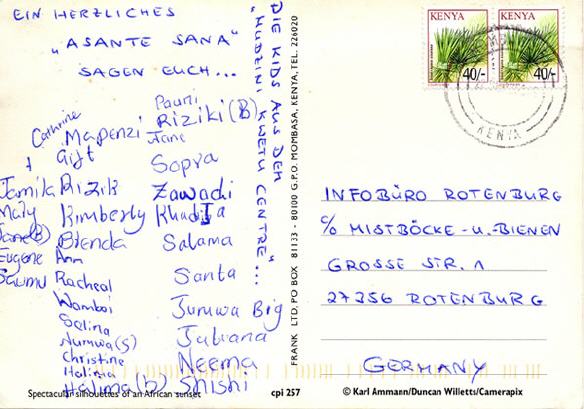 EIN HERZLICHES
„ASANTE SANA"
SAGEN EUCH...
DIE KIDS AUS DEM
"MUDZINI KWETU CENTRE"...
Pauni
Catherine
Riziki (B)
Mapenzi
Jane
Gift
Sopra
Jamila
Rizik
Zawadi
Mary
Kimberly
Khadija
Jane(B)
Brenda
Salama
Eugene
Ann
Saumu
Racheal
Santa
Wamboi
Jumwa Big
Selina
Jumwa(S)
Juliana
Christine
Neema
Halima
Halima (b)
Shishi
FRANK LTD, PO BOX 81133 - 80100 G.P.O. MOMBASA, KENYA, TEL. 226020
KENYA
40/-
KENYA
40/-
KENYA
INFOBÜRO ROTENBURG
c/o MISTBÖCKE -u.-BIENEN
GROSSE STR. 1
27356 ROTENBURG
GERMANY
Spectacular silhouettes of an African sunset
cpi 257
© Karl Ammann/Duncan Willetts/Camerapix